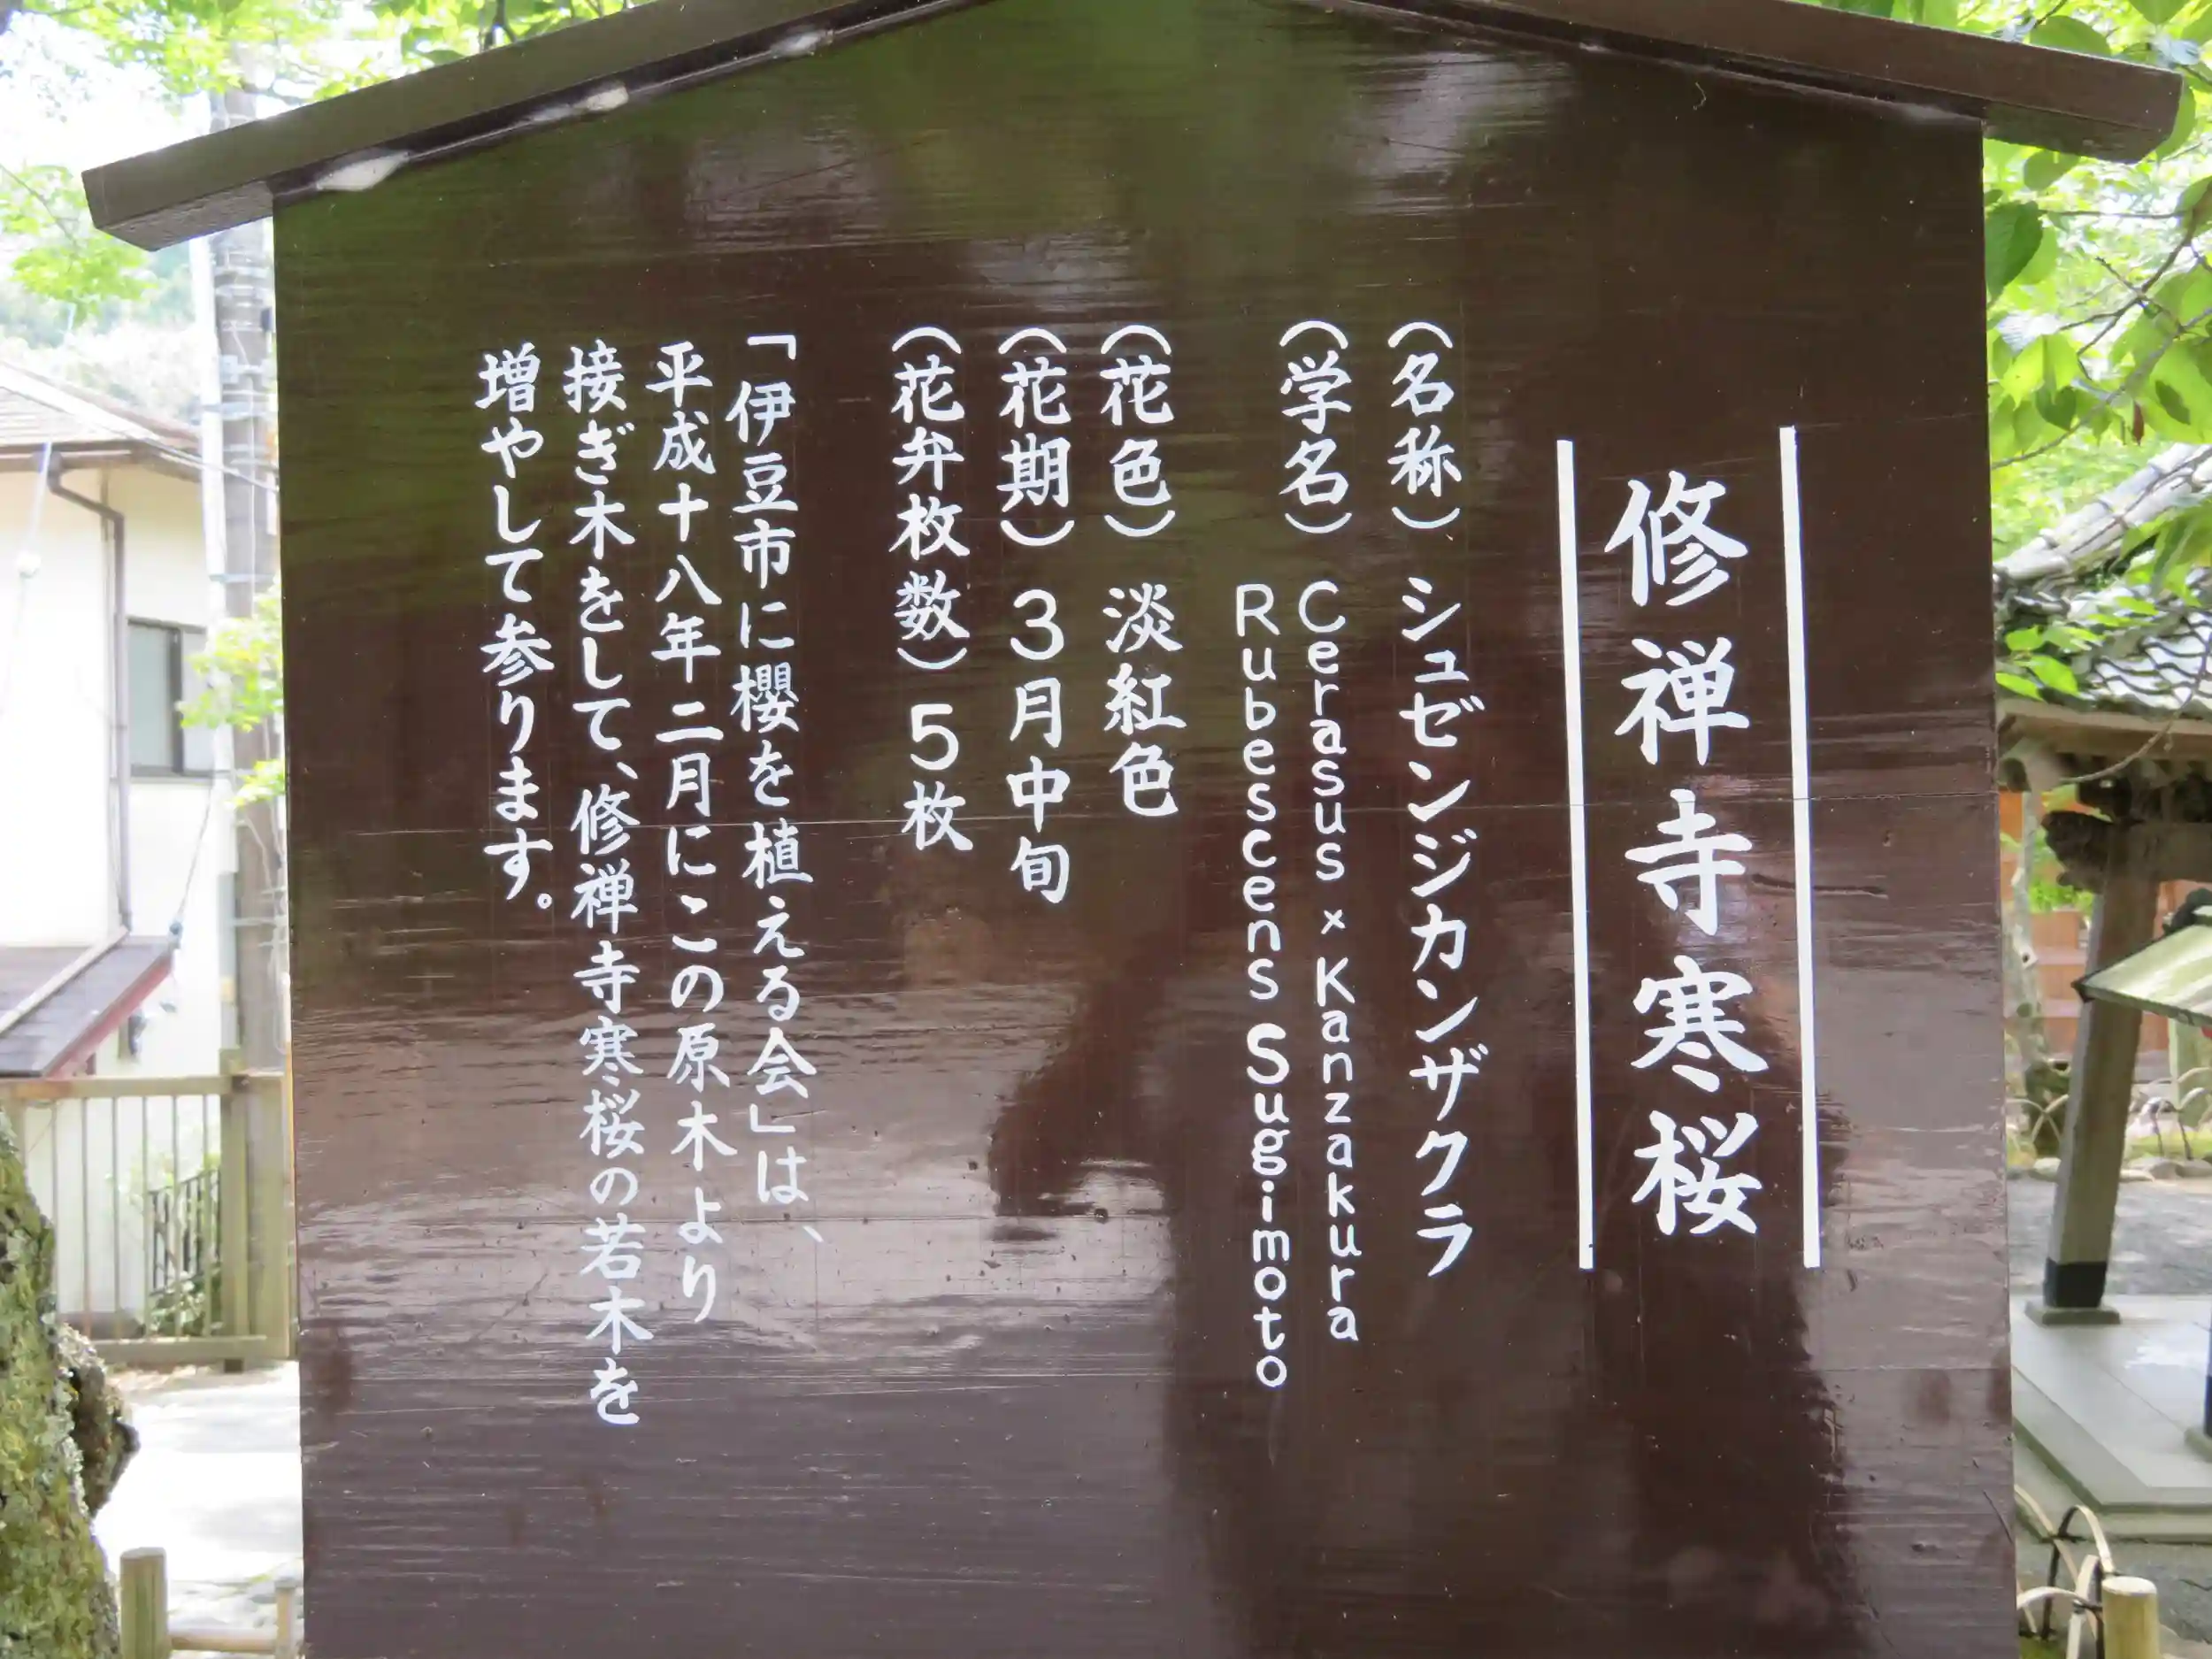 修禅寺寒桜
（名称）シュゼンジカンザクラ
（学名）Cerasus × Kanzakura
Rubescens Sugimoto
（花色）淡紅色
（花期）３月中旬
（花弁枚数）５枚
「伊豆市に櫻を植える会」は、
平成十八年二月にこの原木より
接ぎ木をして、修禅寺寒桜の若木を
増やして参ります。